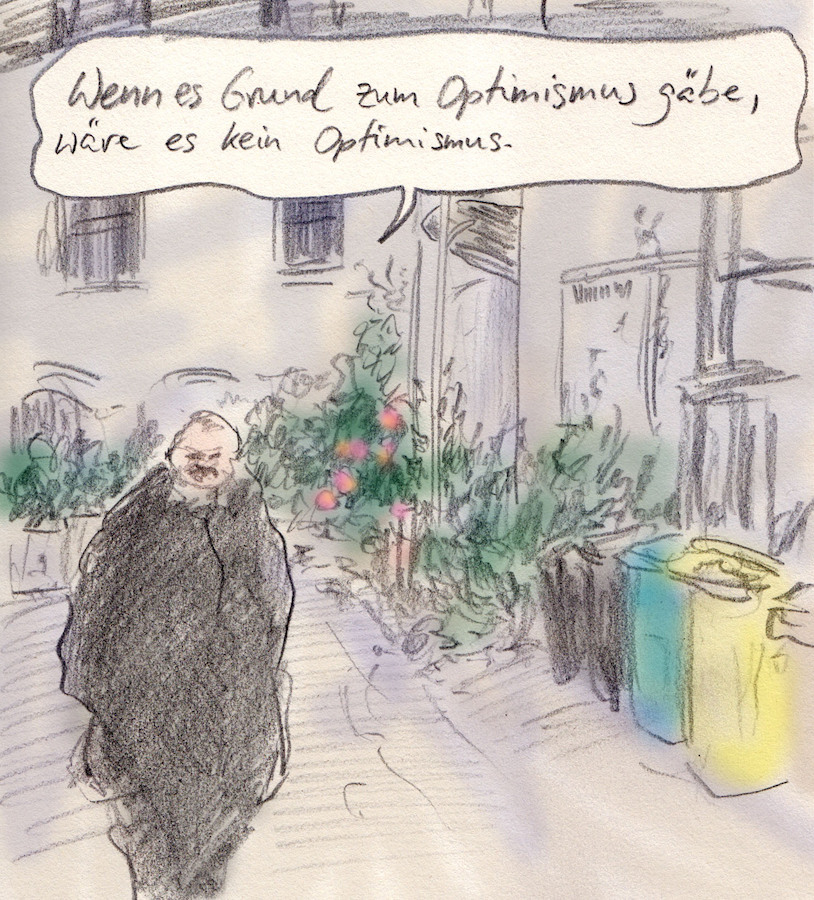 Wenn es Grund zum Optimismus gäbe,
wäre es kein Optimismus.